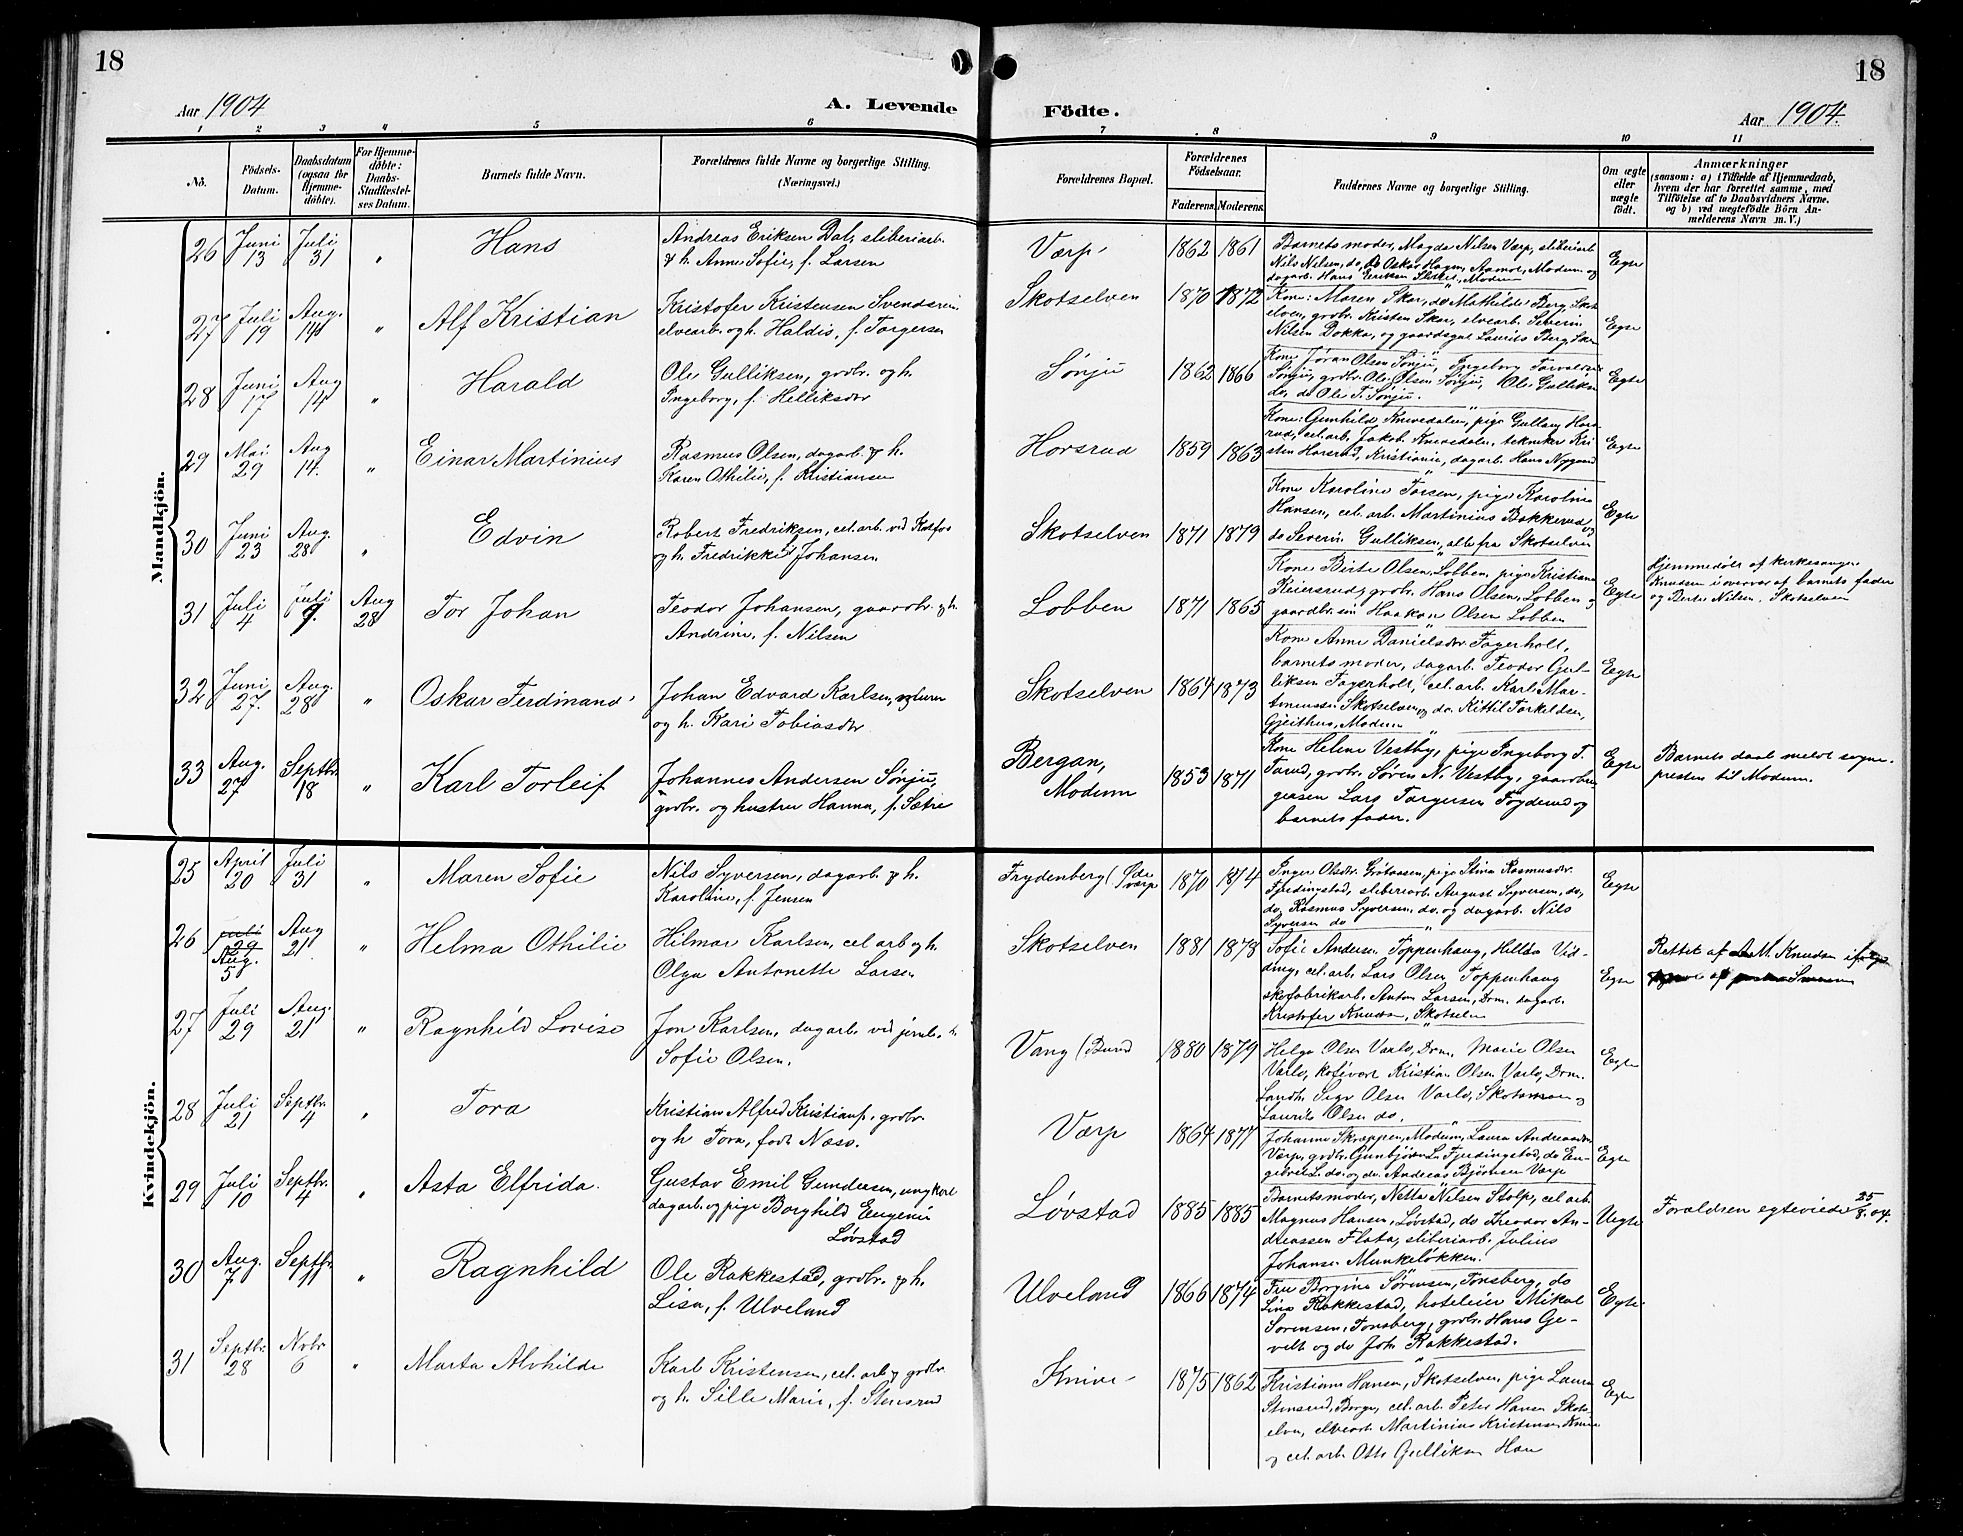 18
18
Aar 1904
A. Levende
Födte.
Aar 1904.
1 2 3 4 5 6 7 8 9 10 11
No.
Födsels-
Datum.
Daabsdatum
(ogsaa for
Hjemme-
döbte).
For Hjemme-
döbte:
Daabs-
Stadfæstel-
ses Datum.
Barnets fulde Navn.
Forældrenes fulde Navne og borgerlige Stilling.
(Næringsvei.)
Forældrenes Bopæl.
Forældrenes
Födselsaar.
Faderens. Moderens.
Faddernes Navne og borgerlige Stilling.
Om ægte
eller
uægte
födt.
Anmærkninger
(saasom: a) i Tilfælde af Hjemmedaab,
hvem der har forrettet samme, med
Tilföielse af to Daabsvidners Navne.
og b) ved uægtefödte Börn An-
melderens Navn m. V.)
Mandkjön.
26 Juni 13 Juli 31 " Hans
Andreas Eriksen Dal, sliberiarb.
& h. Anne Sofie, f. Larsen
Værp 1862 1861
Barnets moder, Magda Nilsen Værp, sliberiarb
Nils Nilsen, do, Oskar Hagen, Aamot, Modum og
dagarb. Hans Eriksen, Modum
Egte
27 Juli 19 Aug. 14 " Alf Kristian
Kristofer Kristensen Svendsrud,
elvearb. og h. Haldis, f. Torgersen
Skotselven 1870 1872
Kone: Maren Skar, do Mathilde Berg, Skots
elven, grdbr. Kristen Skar, elvearb. Severin
Nilsen Dokka, og gaardsgut Laurits Berg,
Egte
28 Juni 17 Aug 14 " Harald
Ole Gulliksen, grdbr. og h.
Ingeborg, f. Helliksdtr
Sønju 1862 1866
Kone Jøran Olsen Sønju, Ingeborg
Sønju, grdbr. Ole Olsen Sønju, Ole Gulliksen
do, do Ole T. Sønju.
Egte
29 Mai 29 Aug 14. " Einar Martinius
Rasmus Olsen, dagarb. & h.
Karen Othilie, f. Kristiansen
Horsrud 1859 1863
Kone: Gunhild Knivedalen, pige Gullaug Hors
rud, cel. arb. Jakob Knivedalen, tekniker Kri
sten Horsrud, Kristiania, dagarb. Hans Nygaard
Egte
30 Juni 23 Aug. 28 " Edvin
Robert Fredriksen, cel. arb. ved Kolfos
og h. Fredrikke f. Johansen
Skotselven 1871 1879
Kone Karoline Torsen, pige Karoline
Hansen, cel. arb. Martinius Bakkerud og
do Severin Gulliksen, alle fra Skotselven
Egte
31 Juli 4 juli 9. Aug 28 Tor Johan
Teodor Johansen, gaardbr. & h.
Andrine, f. Nilsen
Lobben 1871 1865
Kone Birte Olsen, Lobben, pige Kristiane
Keisersrud, grdbr. Hans Olsen, Lobben og
gaardbr. sin Haakon Olsen Lobben
Egte
Hjemmedøbt af kirkesanger
Knudsen i overvær af barnets fader
og Berte Nilsen. Skotselven
32 Juni 27. Aug. 28 " Oskar Ferdinand
Johan Edvard Karlsen,
og h. Kari Tobiasdtr
Skotselven 1864 1873
Kone Anne Danielsdtr Fagerholt,
barnets moder, dagarb. Teodor Gul-
liksen Fagerholt, cel. arb. Karl Mar-
tinussen Skotselven og do. Kittil Torkildsen,
Gjeithus, Modum
Egte
33 Aug. 27 Septbr. 18 " Karl Torleif
Johannes Andersen Sønju,
grdbr. og hustru Hanna, f. Sætre
Bergan,
Modum 1853 1871
Kone Helene Vestby, pige Ingeborg T.
Tarud, grdbr. Søren N. Vestby, gaardbru
gersøn Lars Torgersen Foyderud og
barnets fader.
Egte
Barnets daab meldt sogne-
presten til Modum.
Kvindekjön.
25 April 20 Juli 31 " Maren Sofie
Nils Syversen, dagarb. & h.
Karoline, f. Jensen
Frydenberg (Øde
værp 1870 1874
Inger Olsdtr. Grøtaasen, pige Stina Rasmusdtr.
Fjerdingstad, sliberiarb. August Syversen, do,
do, Rasmus Syversen, do. og dagarb. Nils
Syversen do
Egte
26 juli 29 Aug. 5 Aug 21. " Helma Othilie
Hilmar Karlsen, cel arb og h.
Olga Antonette Larsen
Skotselven 1881 1878
Sofie Andersen Toppenhaug, Hilda Vid-
ding, cel. arb. Lars Olsen Toppenhaug
skofabrikarb. Anton Larsen, Drm. dagarb.
Kristofer Knudsen, Skotselven
Egte
Rettet af A. M. Knudsen
27 Juli 29 Aug. 21 " Ragnhild Lovise
Jon Karlsen, dagarb. ved jernb. & h.
Sofie Olsen.
Vang (Burud 1880 1879
Helga Olsen Varlo, Drm. Marie Olsen
Varlo, Kristian Olsen Varlo, Drm.
Landh. Sigv Olsen Varlo, og
Laurits Olsen do.
Egte
28 Juli 21 Septbr. 4 " Tora
Kristian Alfred Kristians., grdbr.
og h Tora, født Næss.
Værp 1864 1877
Johanne Skrappen, Modum, Laura Andreasdtr
Værp, grdbr. Gunbjørn L. Fjerdingstad, do En-
gebret L. do. og do. Andreas Bjørnsen Værp
Egte
29 Juli 10 Septbr. 4 " Asta Elfrida.
Gustav Emil Gundersen, ungkarl
dagarb. og pige Borghild Eugenie
Løvstad
Løvstad 1885 1885
Barnets moder, Netta Nilsen Stolp, cel arb.
Magnus Hansen, Løvstad, do Theodor An-
dreassen Flata, sliberiarb. Julius
Johansen Munkeløkken.
Uegte
Forældren egteviede 25/8. 04.
30 Aug. 7 Septbr. 11 " Ragnhild
Ole Rakkestad, grdbr. & h.
Lisa, f. Ulveland
Ulveland 1866 1874
Fru Borgina Sørensen, Tønsberg, do
Lina Rakkestad, hoteleier Mikal
Sørensen, Tønsberg, grdbr. Hans Ge-
velt og do Joh. Rakkestad.
Egte
31 Septbr. 28 Novbr 6 " Marta Alvhilde
Karl Kristensen, cel. arb. og grdbr.
og h. Sille Marie, f. Stensrud
Knive 1875 1862
Kristiane Hansen, Skotselven, pige Laura
Stensrud, Borgen, cel. arb. Peter Hansen Skots
elven, elvearb. Martinius Kristensen Knive
og cel. arb. Otto Gulliksen
Egte